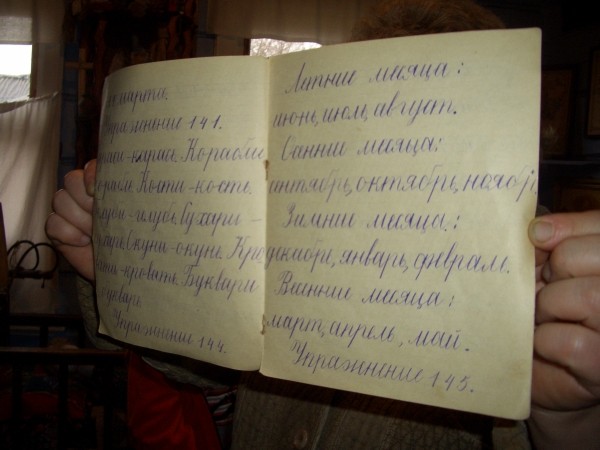 марта.
Упражнение 141.
карась. Корабли
корабль. Кости - кость.
голуби - голубь. Сухари -
сухарь. Окуни - окунь. Кро
вати - кровать. Буквари
букварь
Упражнение 144.
Летние месяца:
июнь, июль, август.
Осенние месяца:
сентябрь, октябрь, ноябрь.
Зимние месяца:
декабрь, январь, февраль.
Весенние месяца:
март, апрель, май.
Упражнение 145.